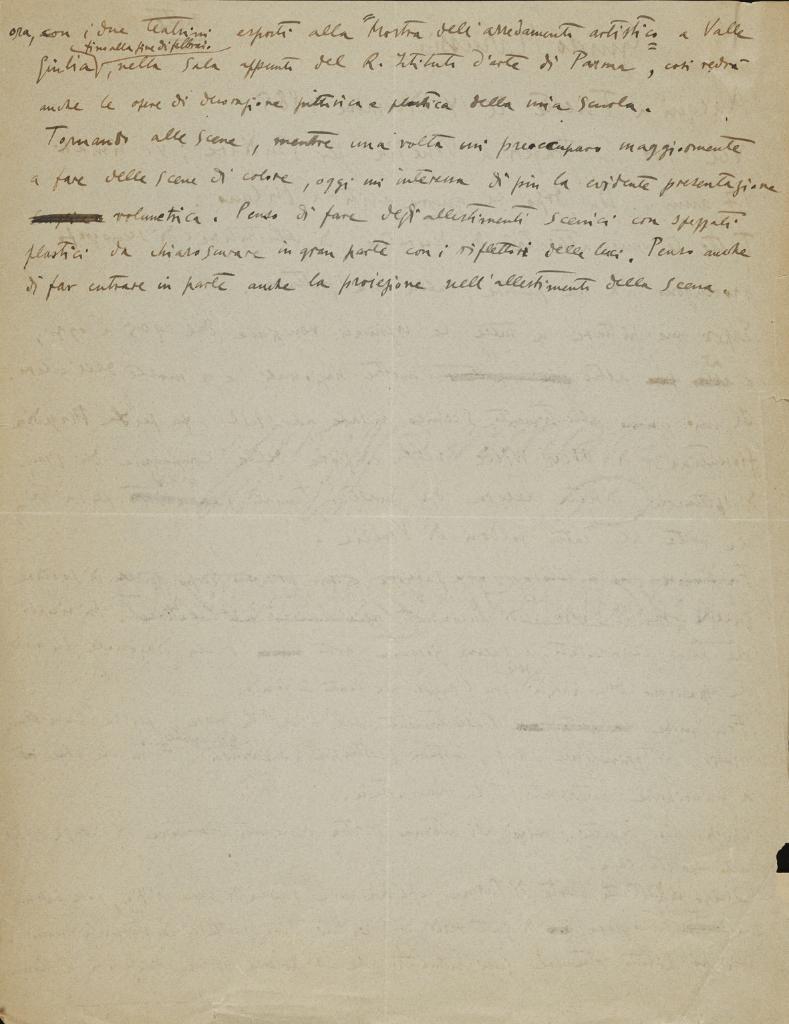 ora, con i due teatrini esposti alla "Mostra dell'arredamento artistico" a Valle
fino alla fine di febbraio
Giulia, nella Sala appunto del R. Istituto d'arte di Parma, così vedrà
anche le opere di decorazione pittorica e plastica della mia Scuola.
Tornando alle scene, mentre una volta mi preoccupavo maggiormente
a fare delle scene di colore, oggi mi interessa di più la evidente presentazione
volumetrica. Penso di fare degli allestimenti scenici con spezzati
plastici da chiaroscurare in gran parte con i riflettori delle luci. Penso anche
di far entrare in parte anche la proiezione nell'allestimento della scena.